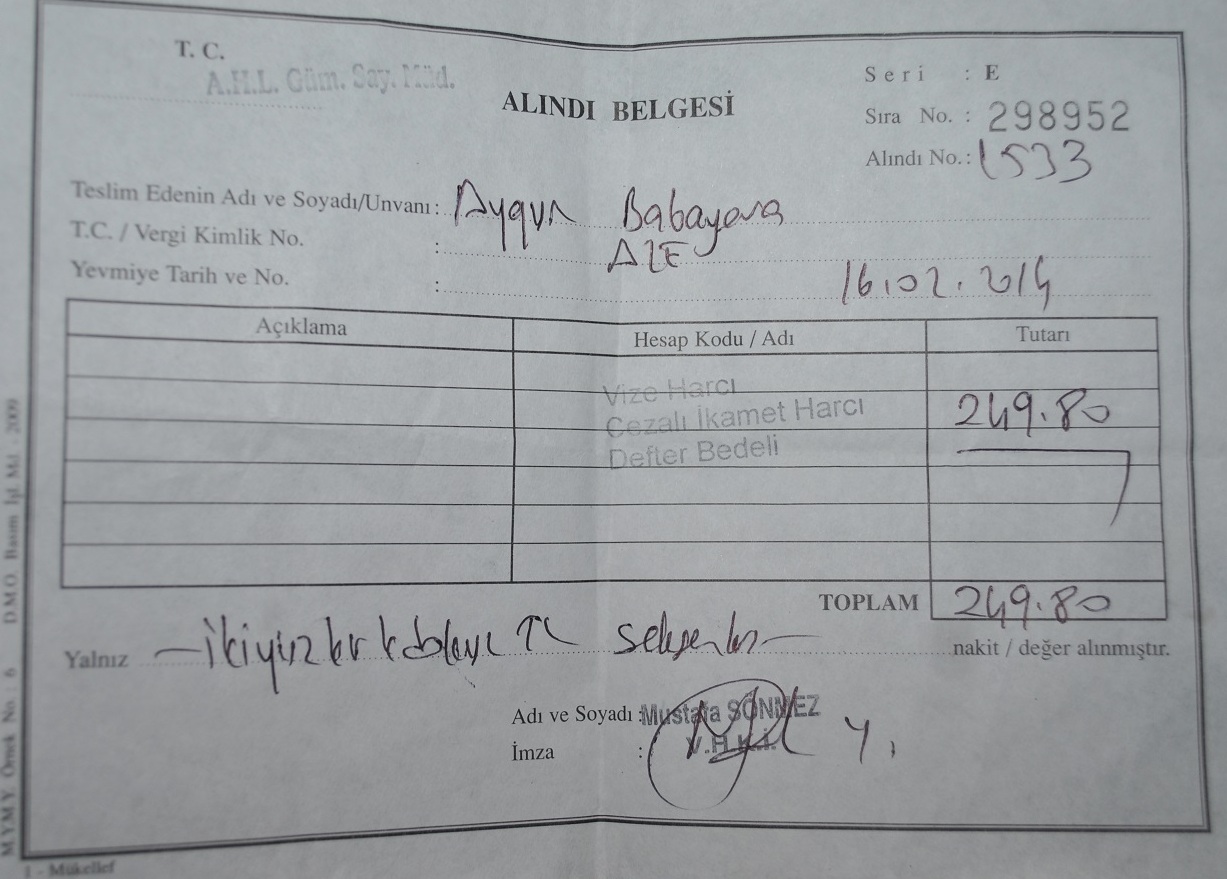 T. C.
A.H.L. Güm. Say. Müd.
ALINDI BELGESİ
Seri : E
Sıra No. : 298952
Alındı No.: 1533
Teslim Edenin Adı ve Soyadı/Unvanı: Aygun Babayeva
T.C. / Vergi Kimlik No. : AZE
Yevmiye Tarih ve No. : 16.02.2014
Açıklama Hesap Kodu / Adı Tutarı
Vize Harcı
Cezalı İkamet Harcı 249.80
Defter Bedeli
TOPLAM 249.80
Yalnız İkiyüz TL nakit / değer alınmıştır.
Adı ve Soyadı : Mustafa SÖNMEZ
İmza : V.H.K.İ.
M.Y.M.Y. Örnek No : 6 D.M.O. Basım İşl. Md. - 2009
1 - Mükellef